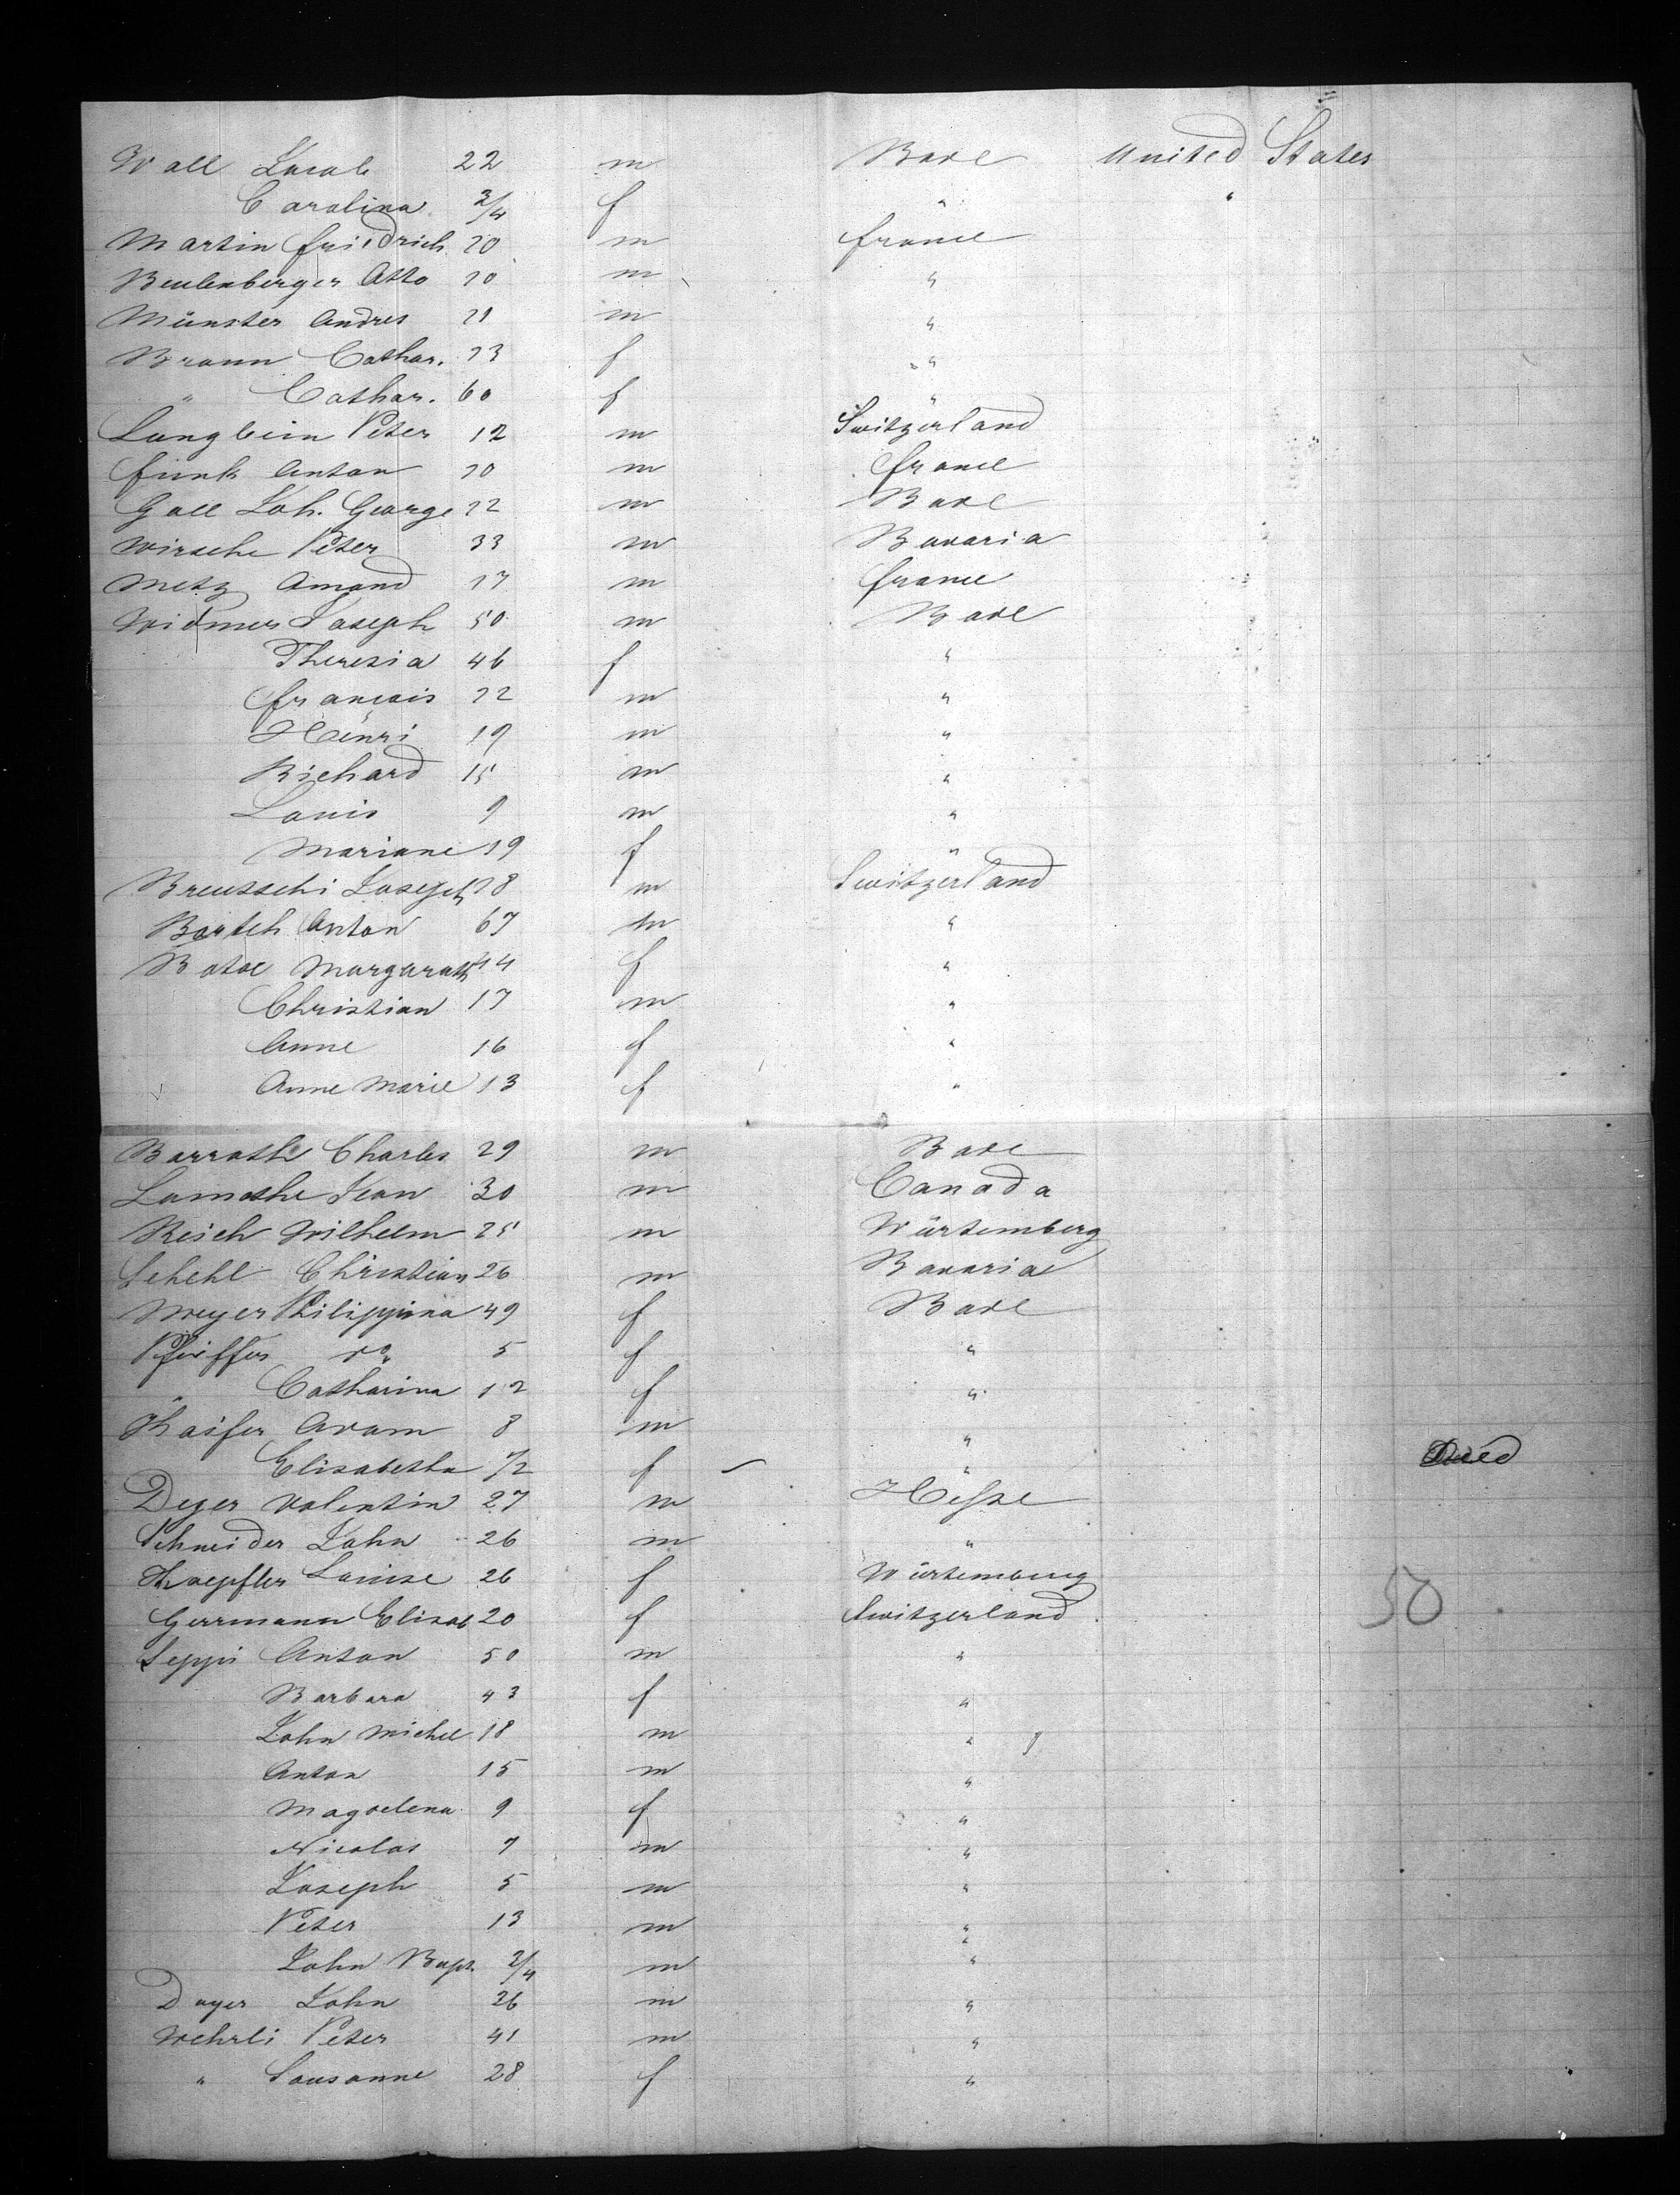 Wall Jacob 22 m Bade United States
Carolina 3/4 f " "
Martin Friedrich 20 m France
Beulenberger Otto 20 m "
Münster Andres 21 m "
Braun Cathar. 23 f "
" Cathar. 60 f "
Langbein Peter 12 m Switzerland
Funk Anton 20 m France
Gall Joh. George 22 m Bade
Wirsche Peter 33 m Bavaria
Metz Amand 17 m France
Widmer Joseph 50 m Bade
Theresia 46 f "
François 22 m "
Henri 19 m "
Richard 15 m "
Louis 9 m "
Mariane 19 f "
Breutschi Joseph 28 m Switzerland
Bartch Anton 67 m "
Margarath 44 f "
Christian 17 m "
Anne 16 f "
Anne Marie 13 f "
Barrath Charles 29 m Bade
Lamothe Jean 30 m Canada
Reich Wilhelm 25 m Würtemberg
Schehl Christian 26 m Bavaria
Meyer Philippina 49 f Bade
Pfeiffer do 5 f "
" Catharina 12 f "
Adam 8 m "
Elisabetha 1/2 f " Died
Deyer Valentin 27 m Hesse
Schneider John 26 m "
Louise 26 f Würtemberg
Germann Elisab 20 f Switzerland 50
Seppi Anton 50 m "
Barbara 43 f "
John Michel 18 m "
Anton 15 m "
Magdelena 9 f "
Nicolas 7 m "
Joseph 5 m "
Peter 13 m "
John Bapt. 3/4 m "
Dayer John 26 m "
Wehrli Peter 41 m "
" Sousanne 28 f "